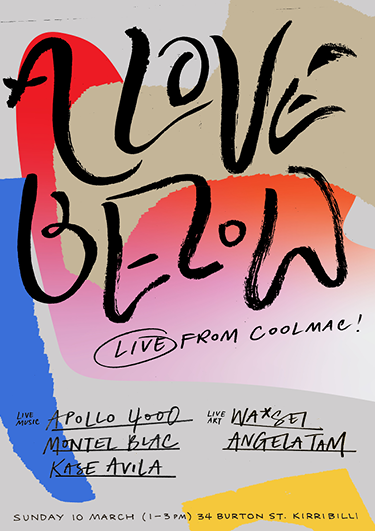 A LOVE
BELOW
LIVE FROM COOLMAC!
LIVE MUSIC
APOLLO YOOO
MONTEL BLAC
KASE AVILA
LIVE ART
WA*SEI
ANGELA TAM
SUNDAY 10 MARCH (1-3PM) 34 BURTON ST. KIRRIBILLI